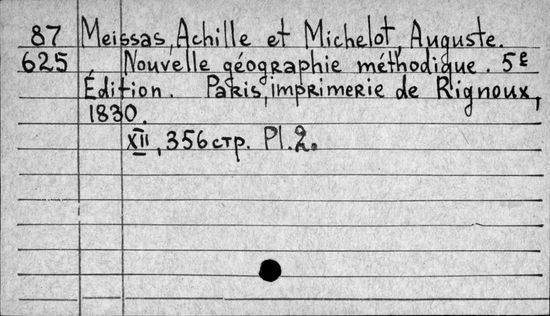 87 Meissas, Achille et Michelot, Auguste.
625 Nouvelle géographie méthodique. 5e
Édition. Paris, imprimerie de Rignoux,
1830.
XII, 356 стр. Pl. 2.